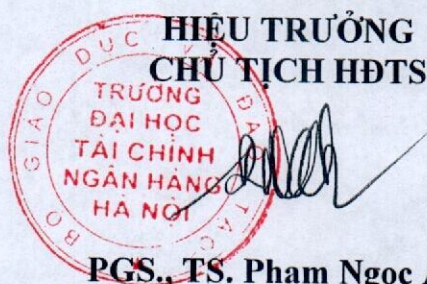 HIỆU TRƯỞNG
CHỦ TỊCH HĐTS
BỘ GIÁO DỤC VÀ ĐÀO TẠO
TRƯỜNG
ĐẠI HỌC
TÀI CHÍNH
NGÂN HÀNG
HÀ NỘI
PGS., TS. Phạm Ngọc